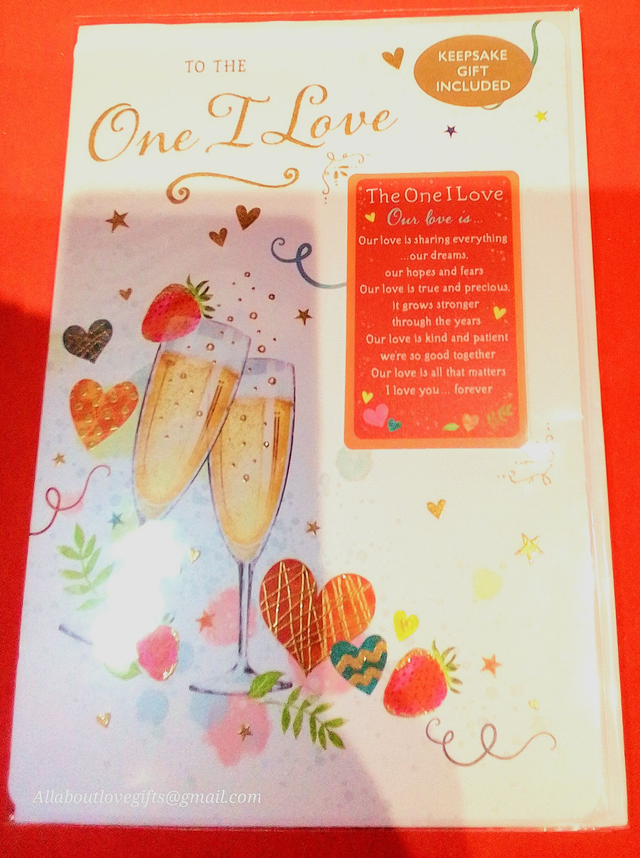 TO THE
One I Love
KEEPSAKE
GIFT
INCLUDED
The One I Love
Our love is...
Our love is sharing everything
...our dreams,
our hopes and fears
Our love is true and precious,
it grows stronger
through the years
Our love is kind and patient
we're so good together
Our love is all that matters
I love you... forever
Allaboutlovegifts@gmail.com